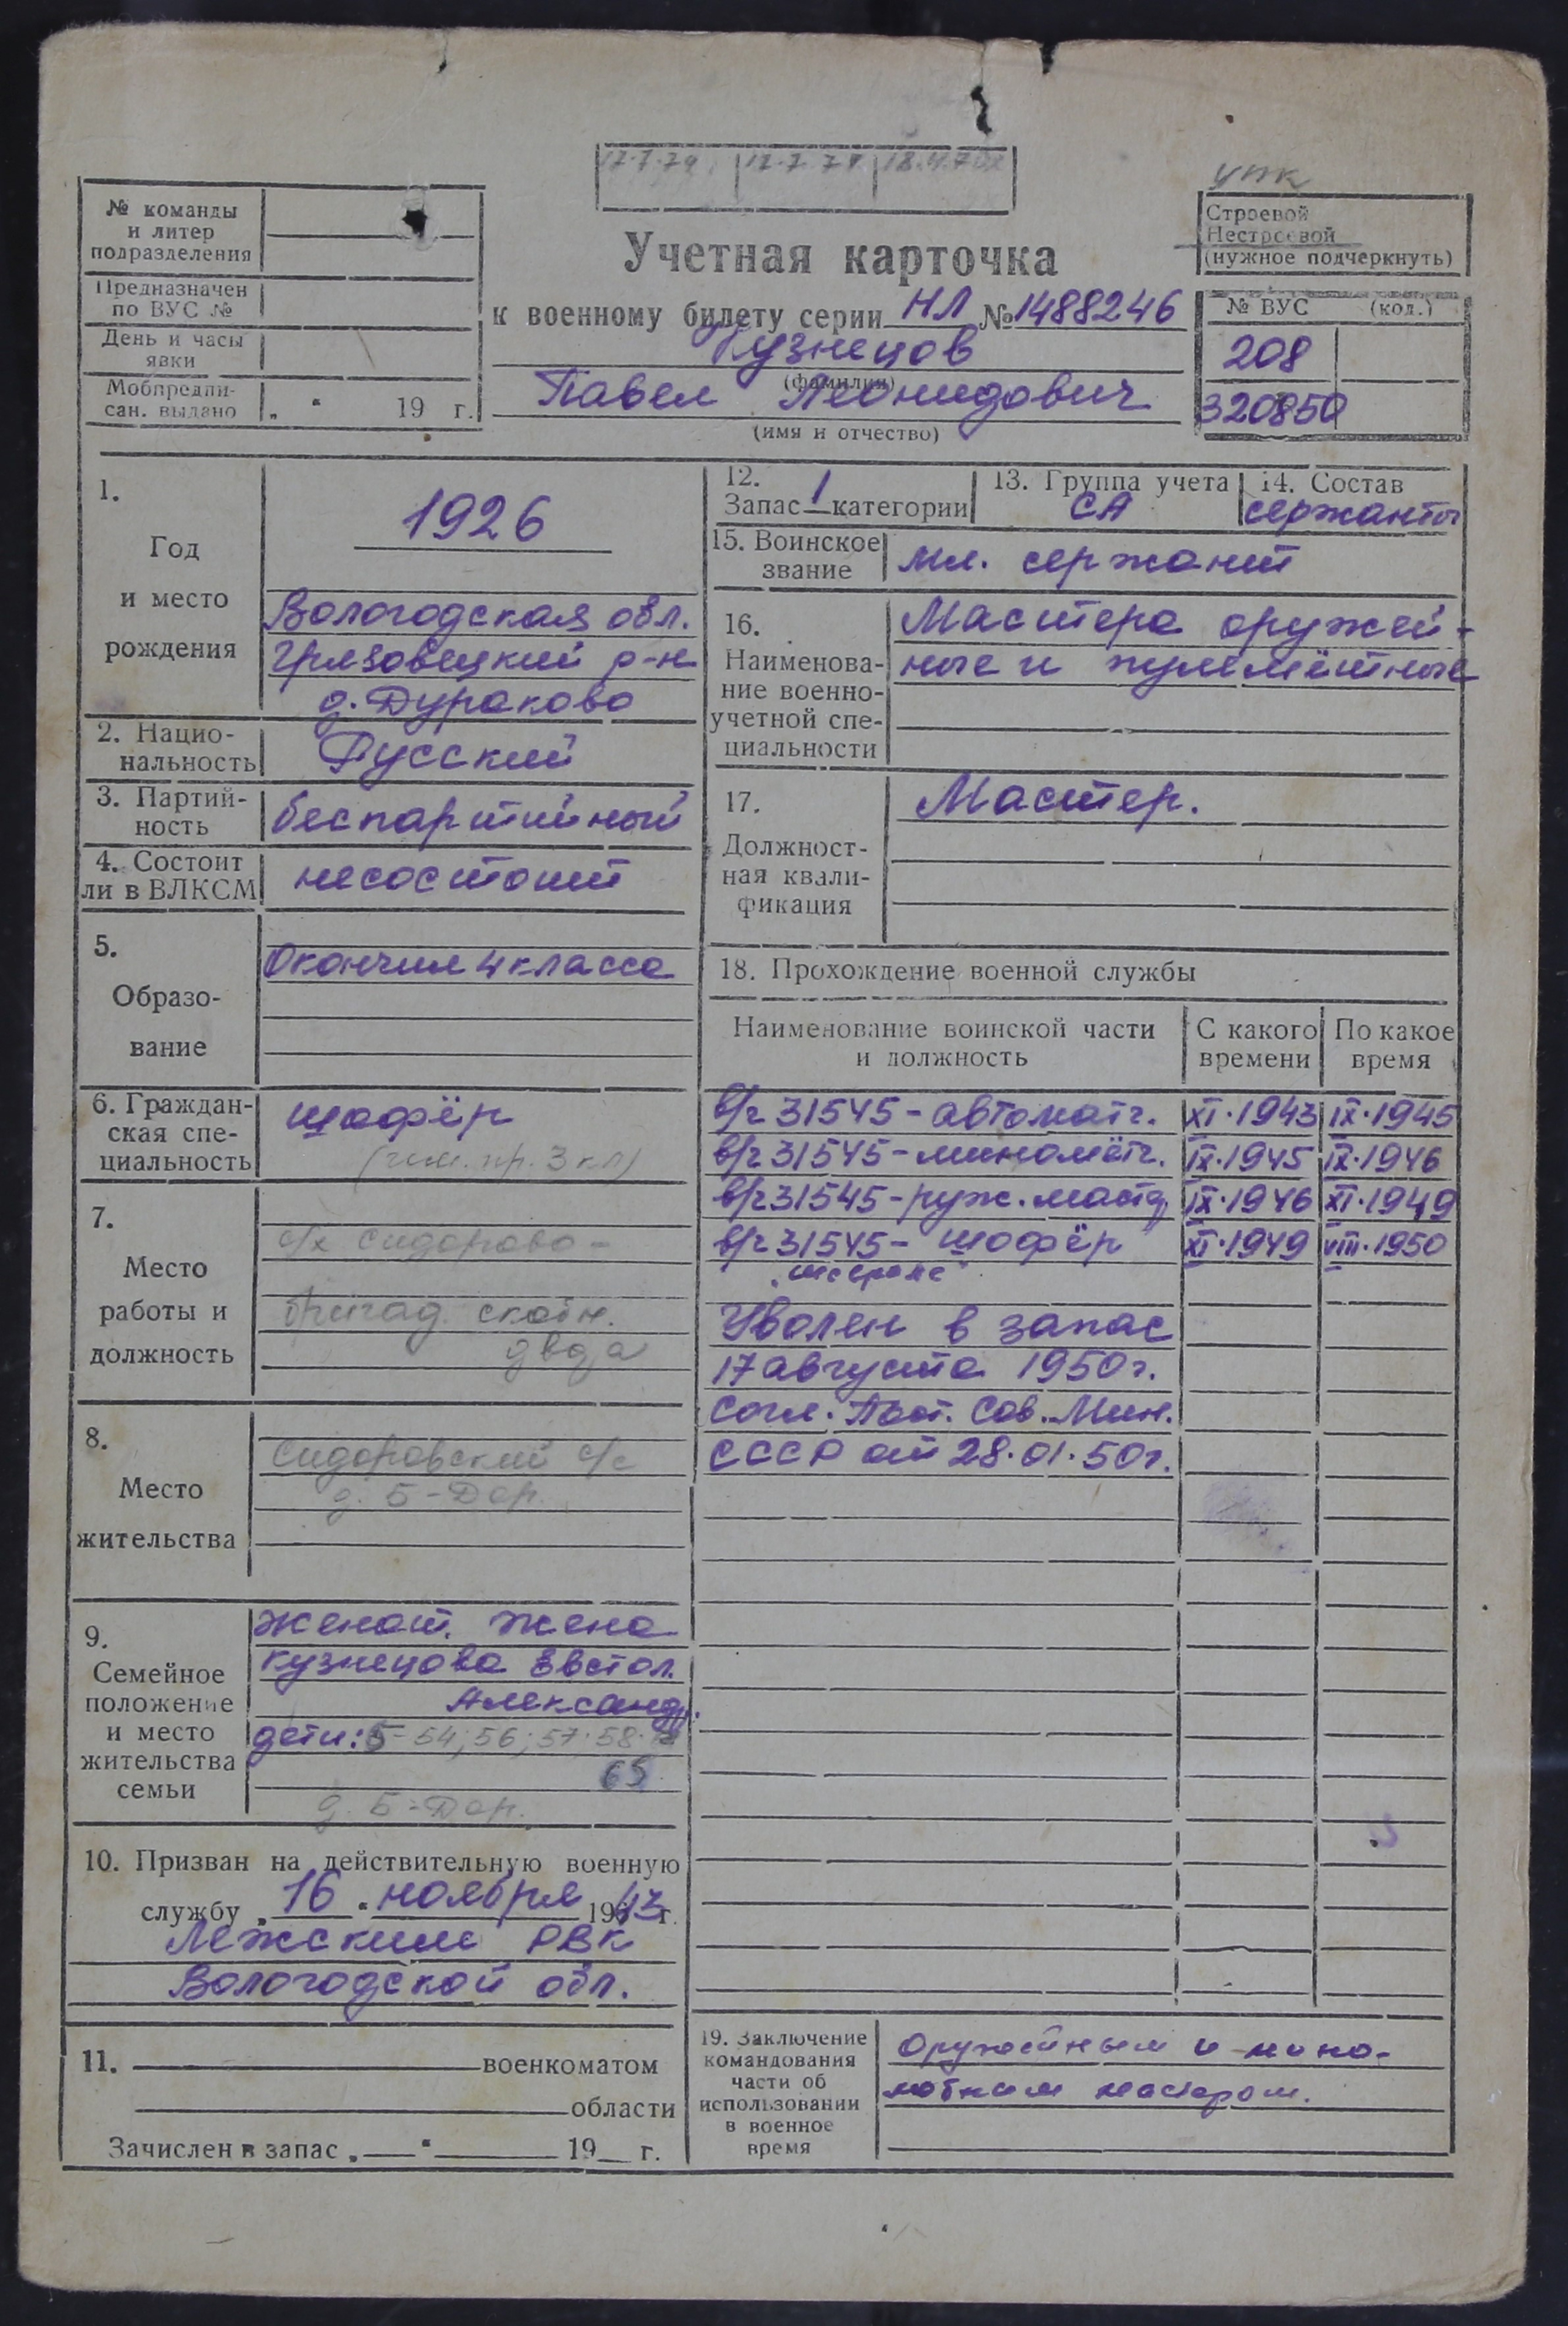 17.7.74
упк
№ команды
и литер
подразделения
Предназначен
по ВУС №
День и часы
явки
Мобпредпи-
сан. выдано „ “ 19 г.
Учетная карточка
к военному билету серии НЛ № 1488246
Кузнецов
(фамилия)
Павел Леонидович
(имя и отчество)
Строевой
Нестроевой
(нужное подчеркнуть)
№ ВУС (код.)
208
320850
1.
Год
и место
рождения
1926
Вологодская обл.
Грязовецкий р-н
д. Дураково
2. Нацио-
нальность
Русский
3. Партий-
ность
беспартийный
4. Состоит
ли в ВЛКСМ
несостоит
5.
Образо-
вание
Окончил 4 класса
6. Граждан-
ская спе-
циальность
шофёр
7.
Место
работы и
должность
с/х Сидорово-
бригад. скотн.
двора
8.
Место
жительства
Сидоровский с/с
д. Б-Дор.
9.
Семейное
положение
и место
жительства
семьи
Женат. Жена
Кузнецова Евстол.
Александр.
дети: 5-54; 56; 57. 58.
65
д. Б-Дор.
10. Призван на действительную военную
службу „16“ ноября 1943 г.
Лежским РВК
Вологодской обл.
11. военкоматом
области
Зачислен в запас „ “ 19 г.
12.
Запас 1 категории
13. Группа учета
СА
14. Состав
сержанты
15. Воинское
звание
мл. сержант
16.
Наименова-
ние военно-
учетной спе-
циальности
Мастера оружей-
ные и пулемётные
17.
Должност-
ная квали-
фикация
Мастер.
18. Прохождение военной службы
Наименование воинской части
и должность
С какого
времени
По какое
время
в/ч 31545 - автоматч. XI.1943 IX.1945
в/ч 31545 - миномётч. IX.1945 IX.1946
в/ч 31545 - руж. маст. IX.1946 XI.1949
в/ч 31545 - шофёр XI.1949 VIII.1950
Уволен в запас
17 августа 1950 г.
Согл. Пост. Сов. Мин.
СССР от 28.01.50 г.
19. Заключение
командования
части об
использовании
в военное
время
оружейным и мино-
мётным мастером.